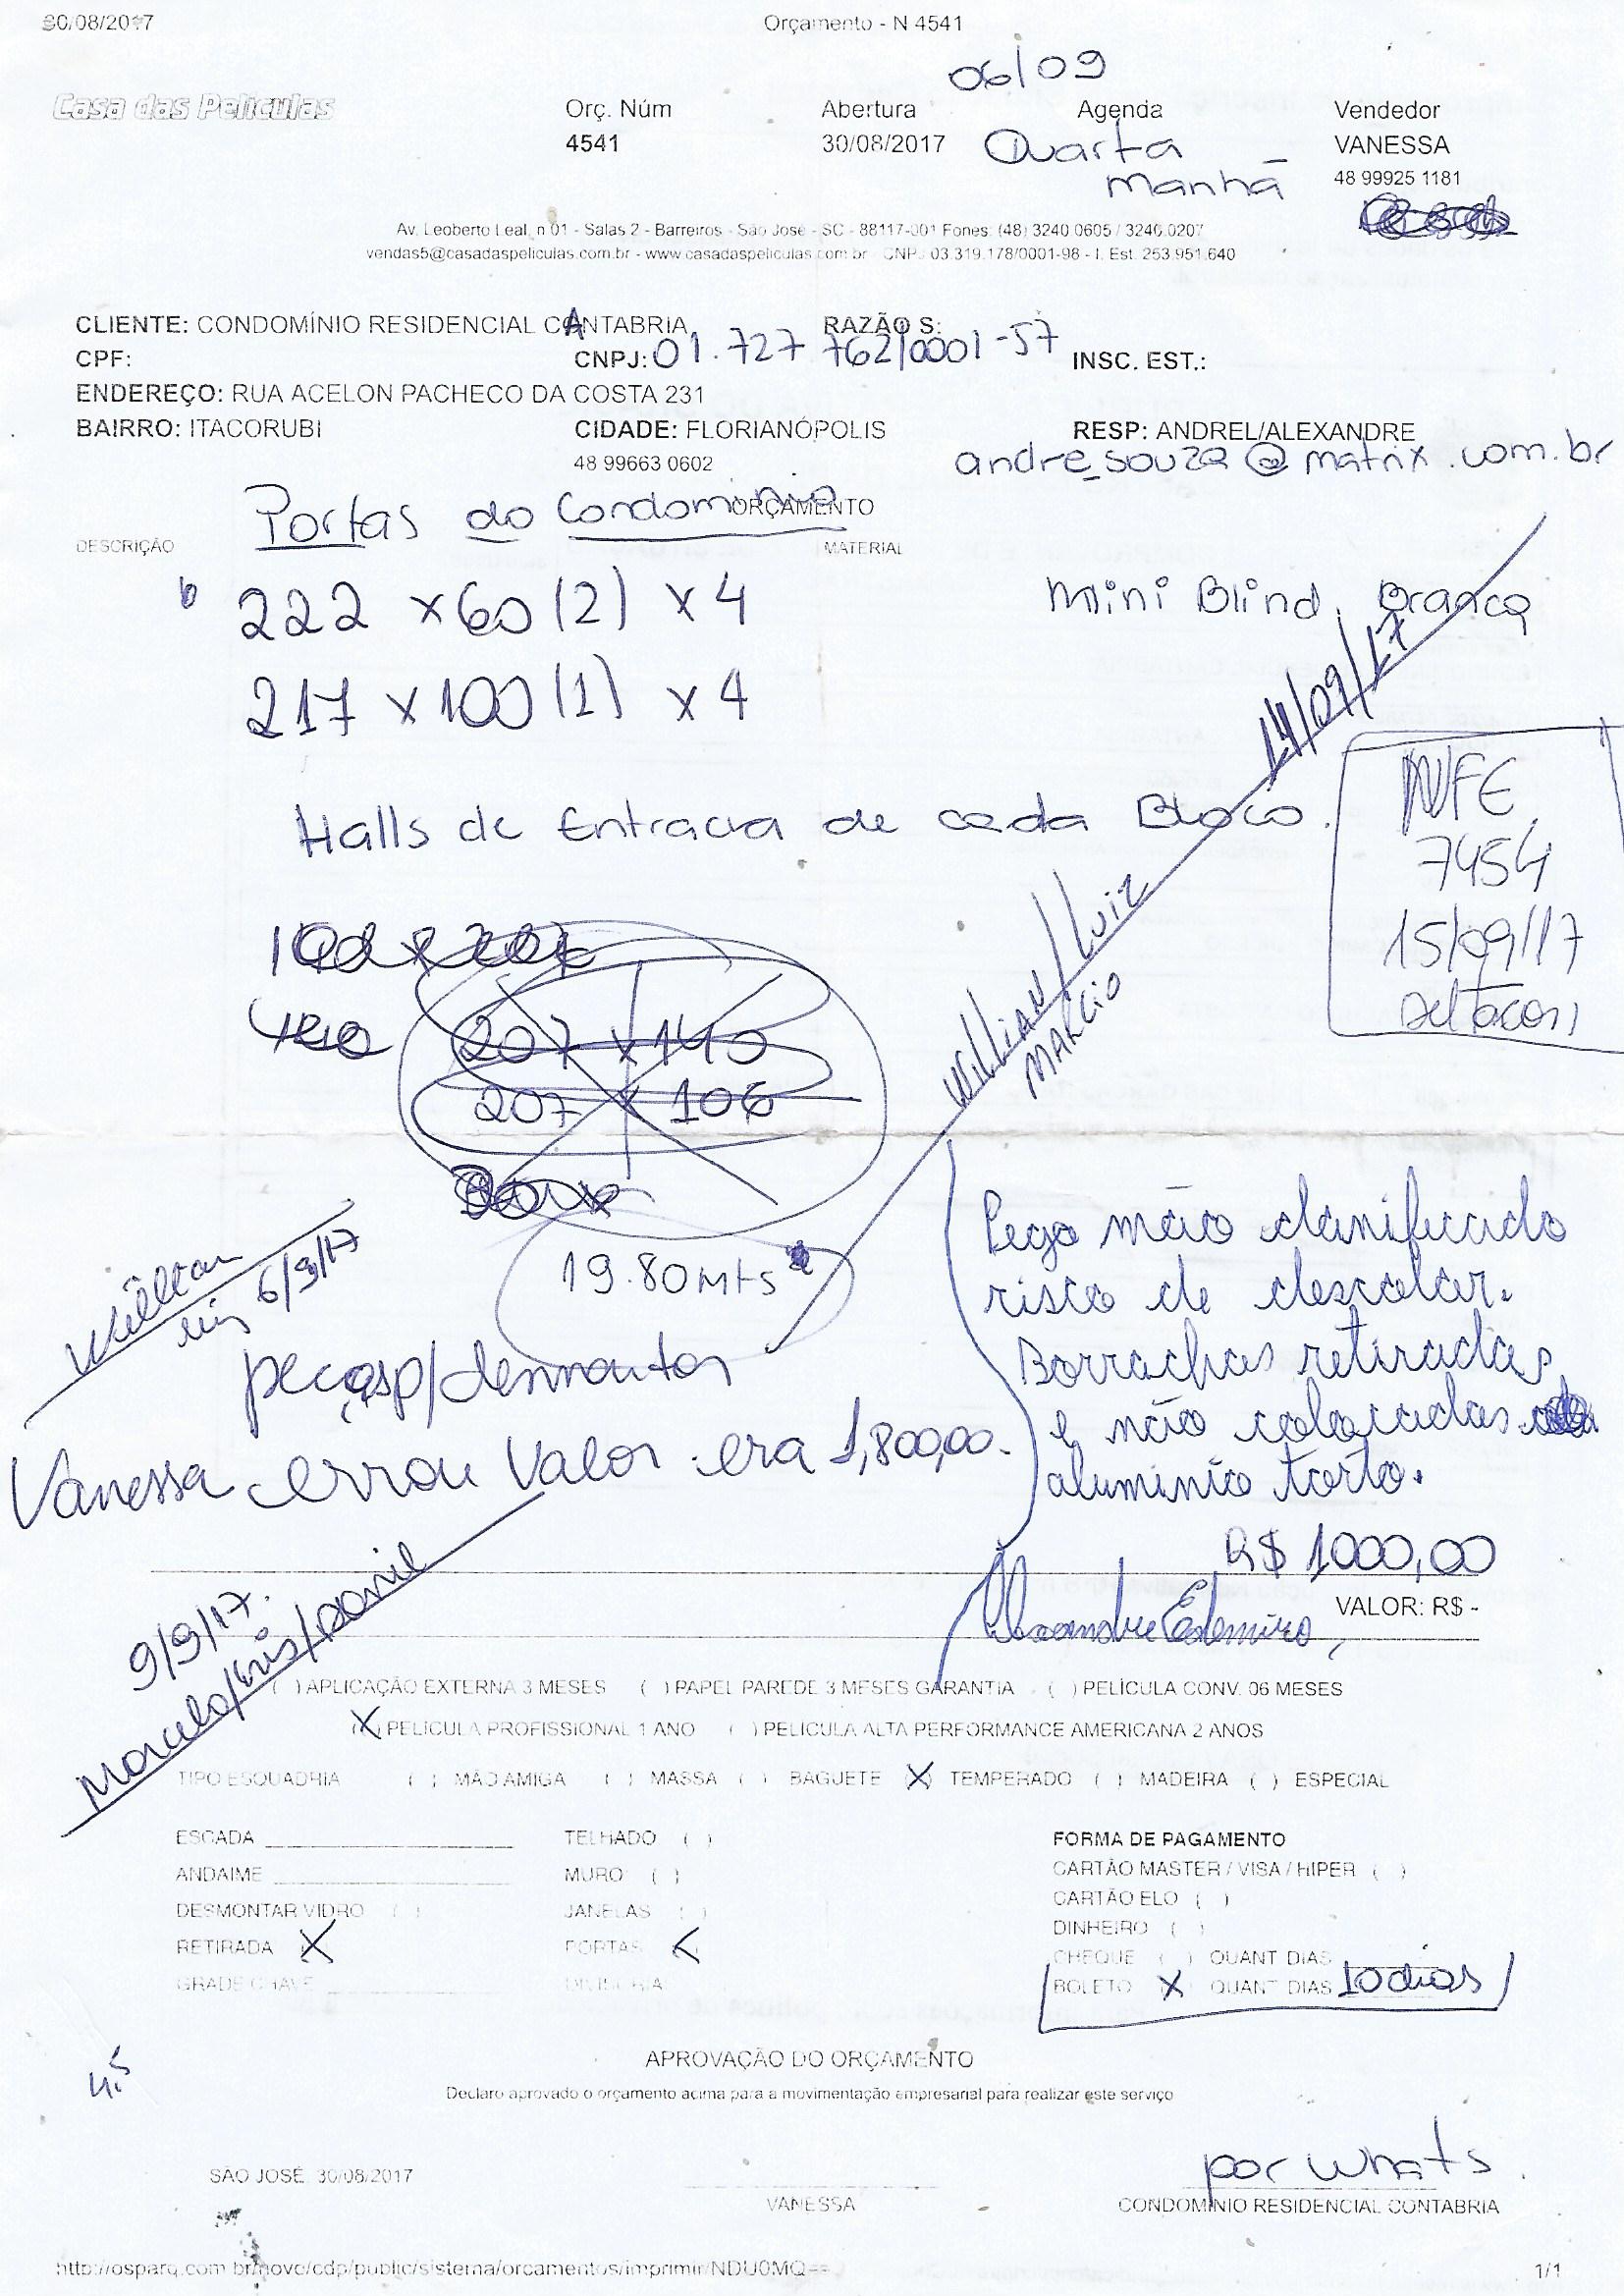 30/08/2017 Orçamento - N 4541
06/09
Casa das Películas Orç. Núm Abertura Agenda Vendedor
4541 30/08/2017 Quarta VANESSA
manhã 48 99925 1181
Av. Leoberto Leal, n 01 - Salas 2 - Barreiros - São José - SC - 88117-001 Fones: (48) 3240 0605 / 3246.0207
vendas5@casadaspeliculas.com.br - www.casadaspeliculas.com.br CNPJ 03.319.178/0001-98 - I. Est. 253.951.640
CLIENTE: CONDOMÍNIO RESIDENCIAL CANTABRIA RAZÃO S:
CPF: CNPJ: 01.727 762/0001-57 INSC. EST.:
ENDEREÇO: RUA ACELON PACHECO DA COSTA 231
BAIRRO: ITACORUBI CIDADE: FLORIANÓPOLIS RESP: ANDREL/ALEXANDRE
48 99663 0602 andre_souza@matrix.com.br
Portas do Condominio ORÇAMENTO
DESCRIÇÃO MATERIAL
222 x 60 (2) x 4 Mini Blind. Branca
217 x 100 (1) x 4
14/09/17
NFE
7454
15/09/17
Halls de Entrada de cada Bloco.
Willian/Luiz
Marcio
207 x 140
207 x 106
19.80 mts
6/9/17
peças p/desmontar
Vanessa errou valor era 1,800,00.
Pego não danificado
risco de descolar.
Borrachas retiradas
e não colocadas
aluminio torto.
R$ 1000,00
VALOR: R$ -
9/9/17.
( ) APLICAÇÃO EXTERNA 3 MESES ( ) PAPEL PAREDE 3 MESES GARANTIA ( ) PELÍCULA CONV. 06 MESES
(X) PELICULA PROFISSIONAL 1 ANO ( ) PELICULA ALTA PERFORMANCE AMERICANA 2 ANOS
TIPO ESQUADRIA ( ) MÃO AMIGA ( ) MASSA ( ) BAGUETE (X) TEMPERADO ( ) MADEIRA ( ) ESPECIAL
ESCADA TELHADO ( ) FORMA DE PAGAMENTO
ANDAIME MURO ( ) CARTÃO MASTER / VISA / HIPER ( )
DESMONTAR VIDRO ( ) JANELAS ( ) CARTÃO ELO ( )
RETIRADA X PORTAS X DINHEIRO ( )
GRADE CHAVE DIVISÓRIA CHEQUE ( ) QUANT DIAS
BOLETO X QUANT DIAS 10 dias
APROVAÇÃO DO ORÇAMENTO
Declaro aprovado o orçamento acima para a movimentação empresarial para realizar este serviço
por Whats.
SÃO JOSÉ, 30/08/2017
VANESSA CONDOMÍNIO RESIDENCIAL CONTABRIA
http://osparq.com.br/novo/cdp/public/sistema/orcamentos/imprimir/NDU0MQ== 1/1